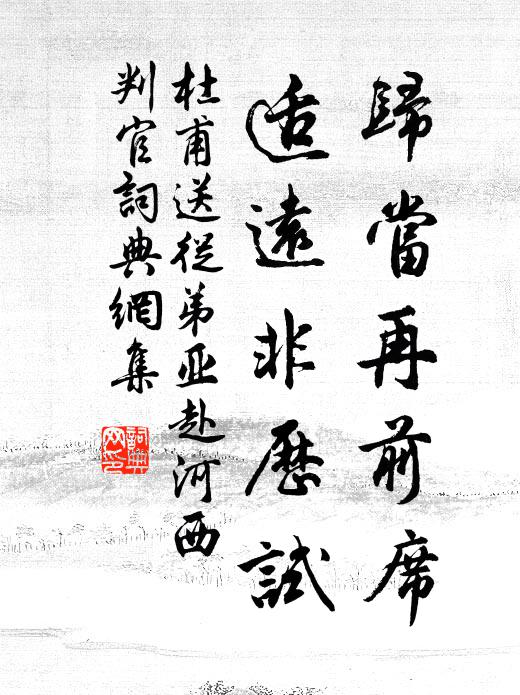 歸當再前席
适遠非歷試
杜甫送從弟亚赴河西
判官詞典網集
詞典网印